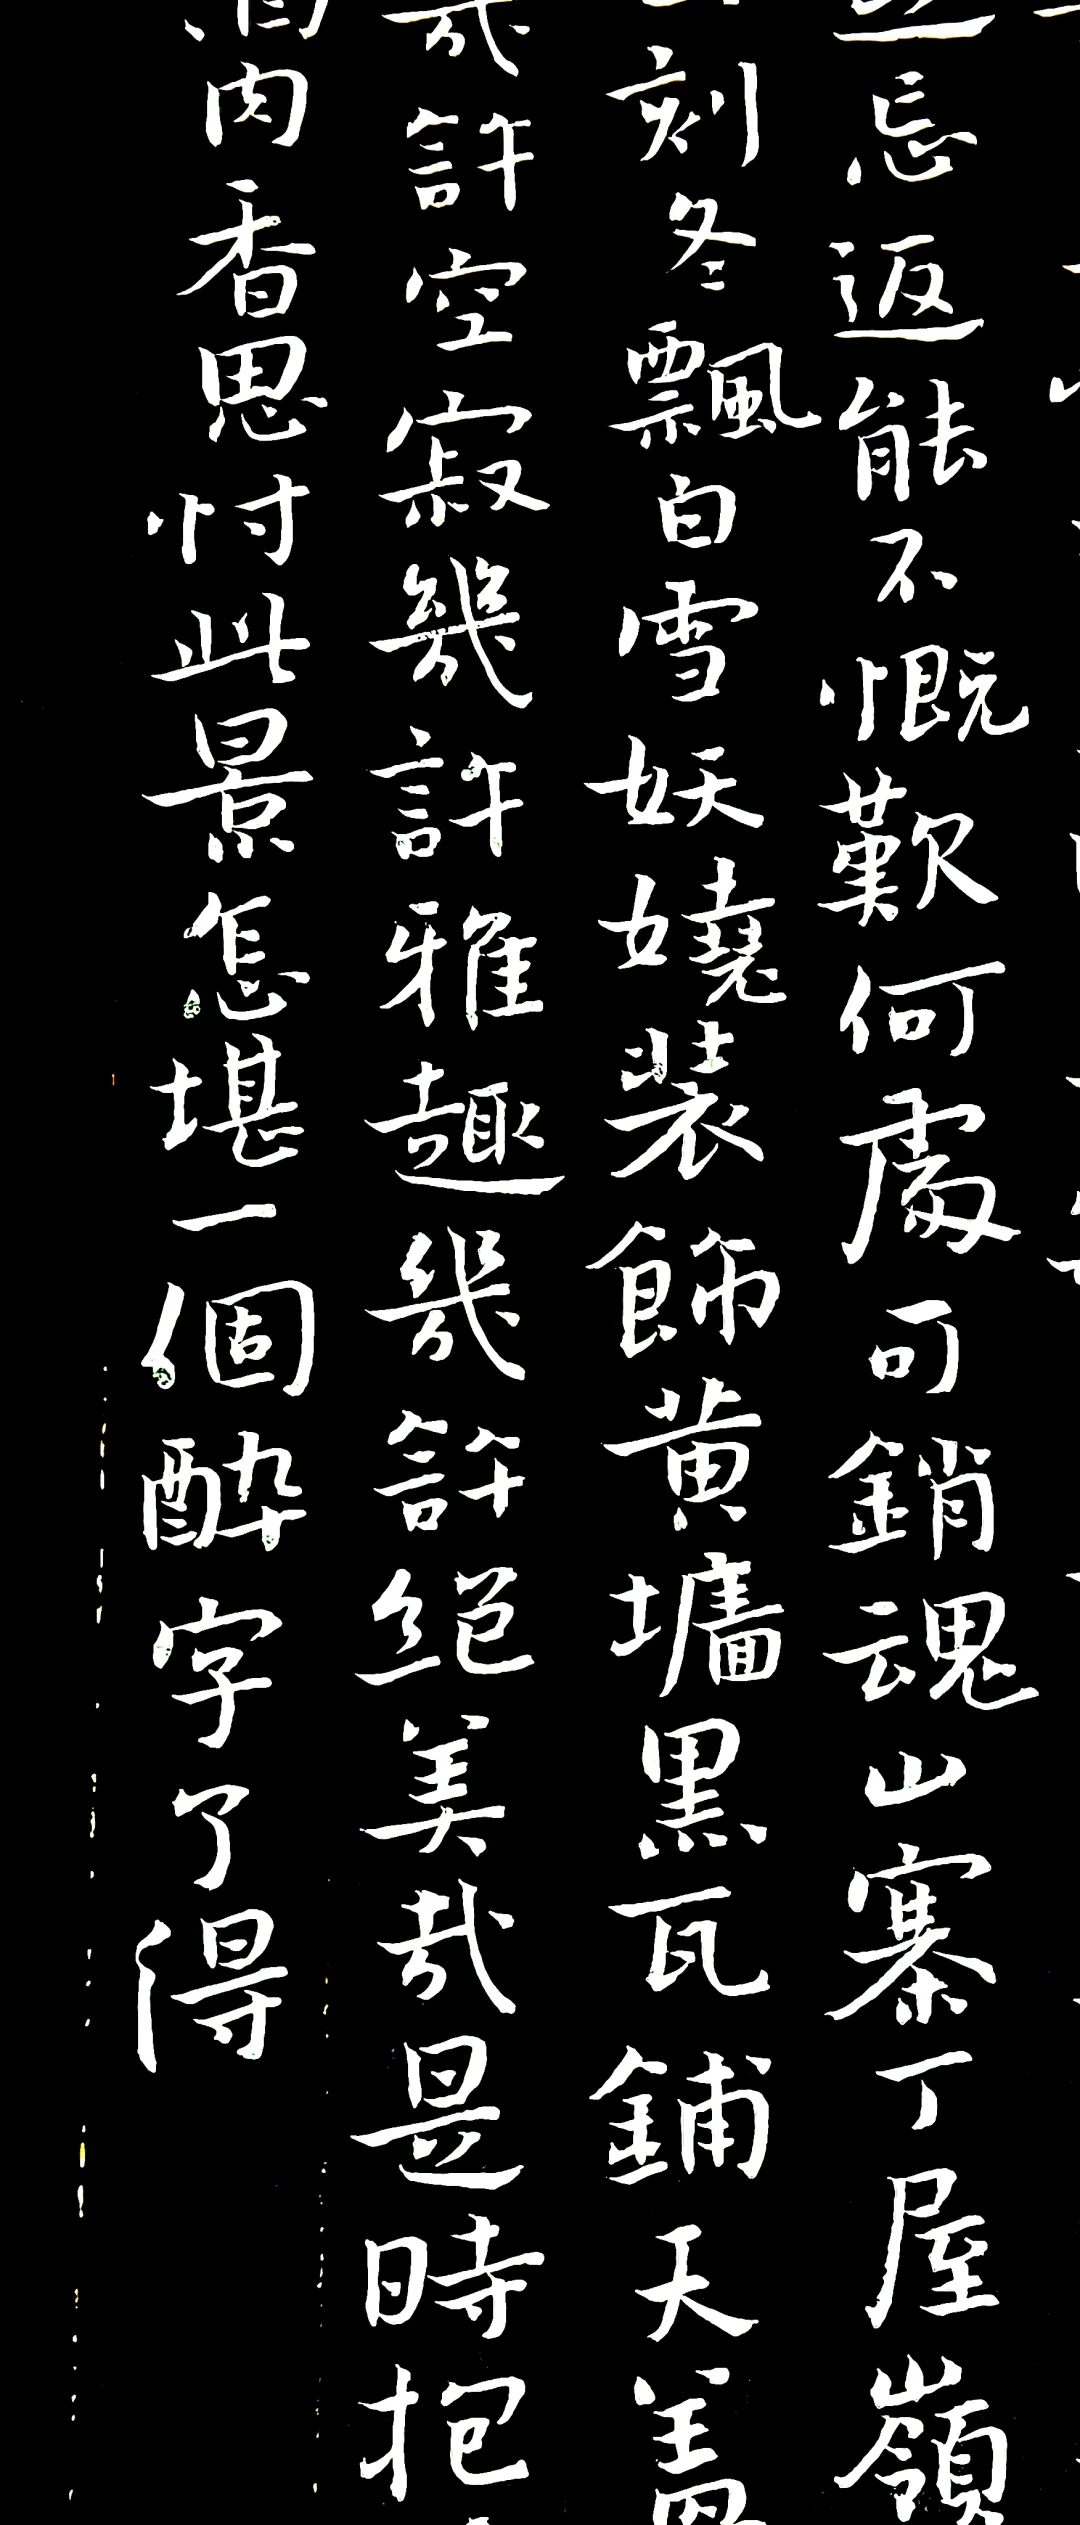 忘返能不慨歎何處可銷魂山寨丁屋嶺
刻冬飄白雪妖嬈裝飾黃墻黑瓦鋪天蓋
幾許空寂幾許雅趣幾許絕美哉是時把
酒肉香思忖此景怎堪一個醉字了得